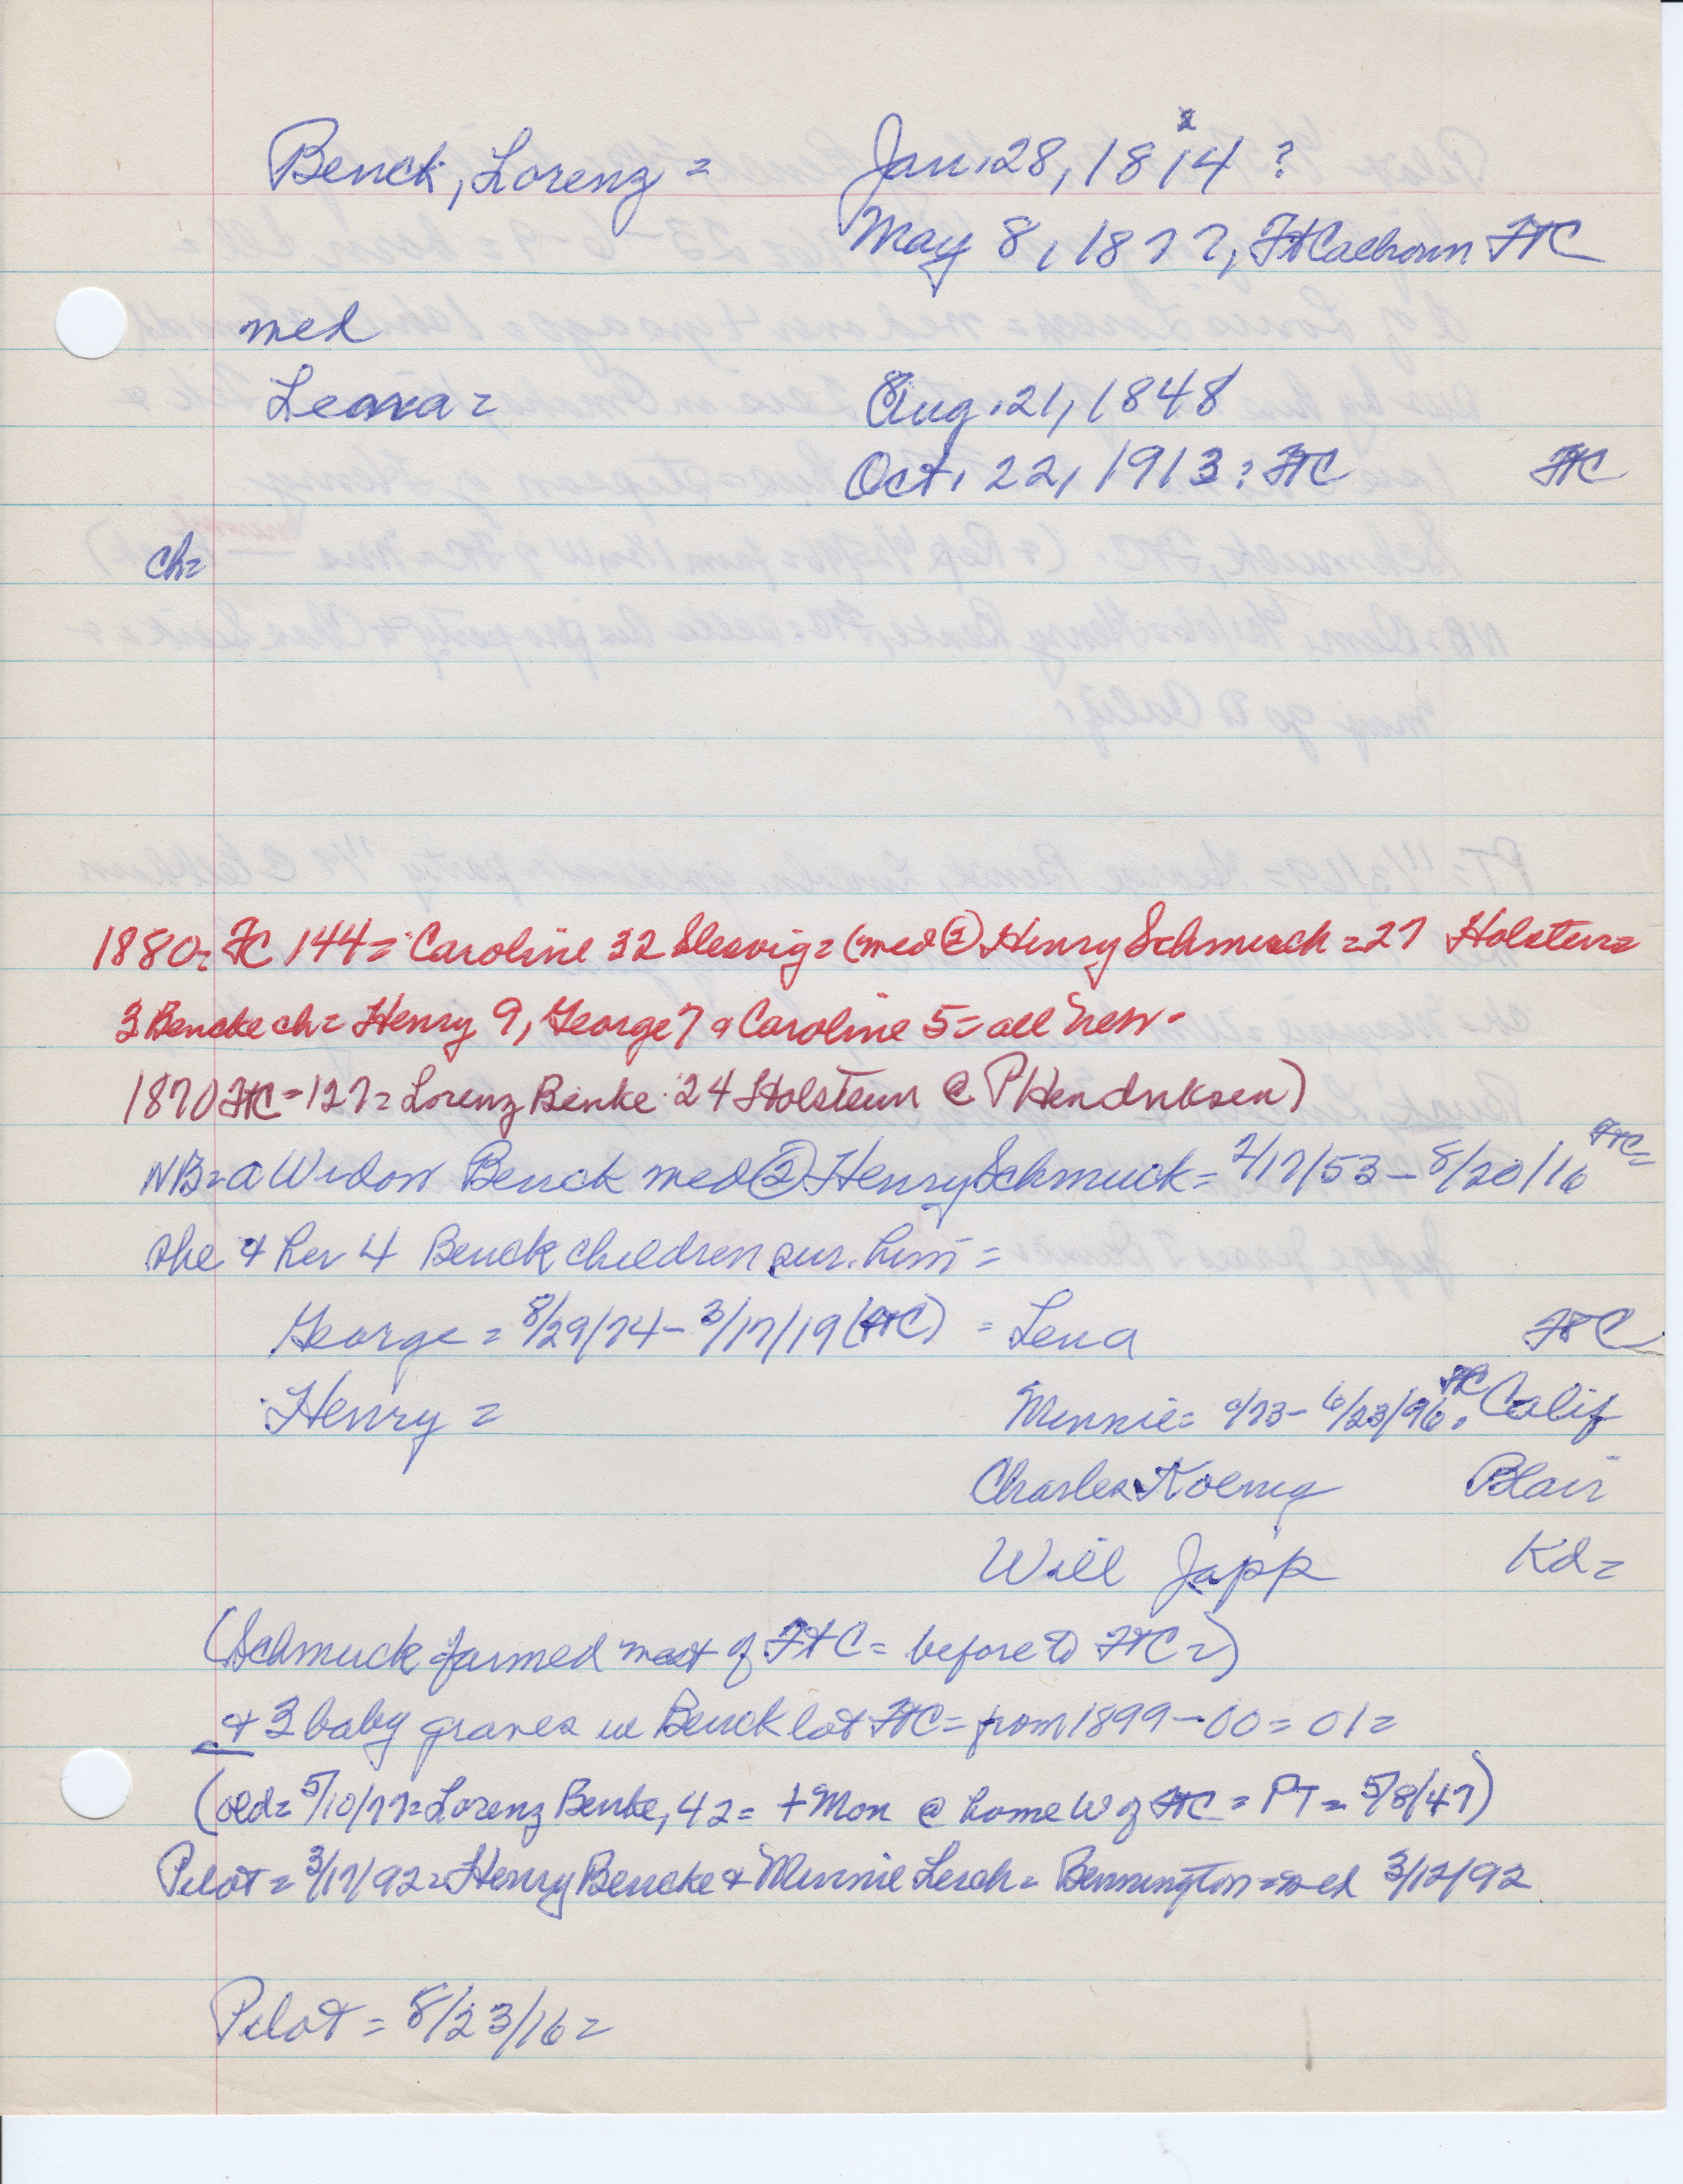 Benck, Lorenz = Jan. 28, 1814 ?
May 8, 1877, Ft Calhoun FTC
med
Leana = Aug. 21, 1848
Oct. 22, 1913 : FTC FTC
ch=
1880= FC 144= Caroline 32 Slesvig= (med ② Henry Schmuck = 27 Holstein=
3 Bencke ch= Henry 9, George 7 & Caroline 5= all Neb.
1870 FTC-127= Lorenz Benke 24 Holstein @ P Hendriksen)
NB= a Widow Benck med ② Henry Schmuck = 2/17/53 – 8/20/16 FTC=
she & her 4 Benck children sur. him =
George = 8/29/74 – 3/17/19 (FTC) = Lena FTC
Henry = Minnie= /73 – 6/23/96, FTC Calif
Charles Koenig Blair
Will Japp Kd=
(Schmuck farmed west of FTC = before to FTC=)
& 3 baby graves in Benck lot FTC= from 1899–00=01=
(old= 5/10/77= Lorenz Benke, 42= + Mon @ home W of FTC = PT= 5/8/47)
Pilot= 3/17/92= Henry Bencke & Minnie Lesch= Bennington= med 3/12/92
Pilot = 8/23/16=